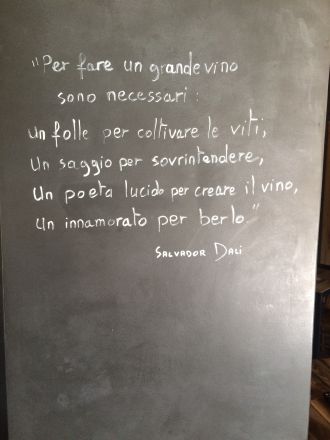 "Per fare un grande vino
sono necessari:
un folle per coltivare le viti,
Un saggio per sovrintendere,
Un poeta lucido per creare il vino,
un innamorato per berlo"
SALVADOR DALI